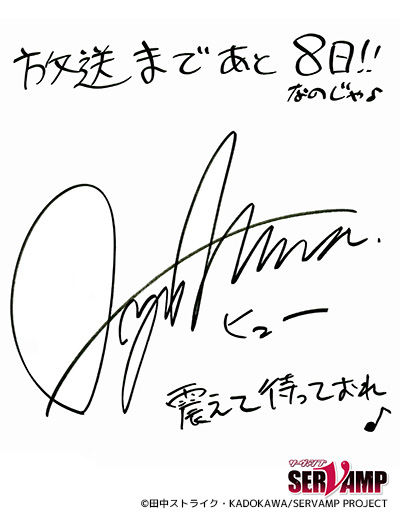 放送まであと 8日!!
なのじゃ♪
ヒュー
震えて待っておれ♪
サーヴァンプ
SERVAMP
©田中ストライク・KADOKAWA/SERVAMP PROJECT